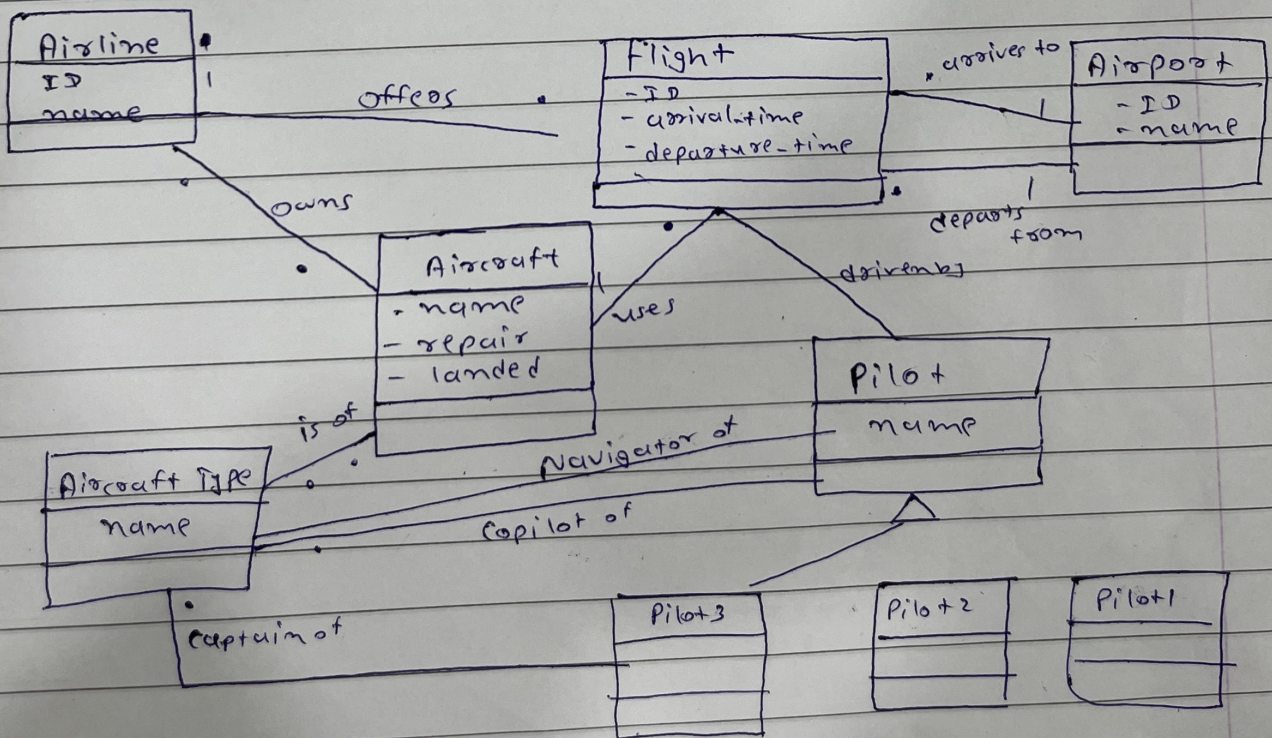 Airline
ID
name
1
offers
Flight
- ID
- arrival-time
- departure-time
arrives to
1
Airport
- ID
- name
1
departs
from
owns
Aircraft
- name
- repair
- landed
1
uses
drivenby
Pilot
name
is of
Aircraft Type
name
Navigator of
Copilot of
captain of
Pilot3
Pilot2
Pilot1